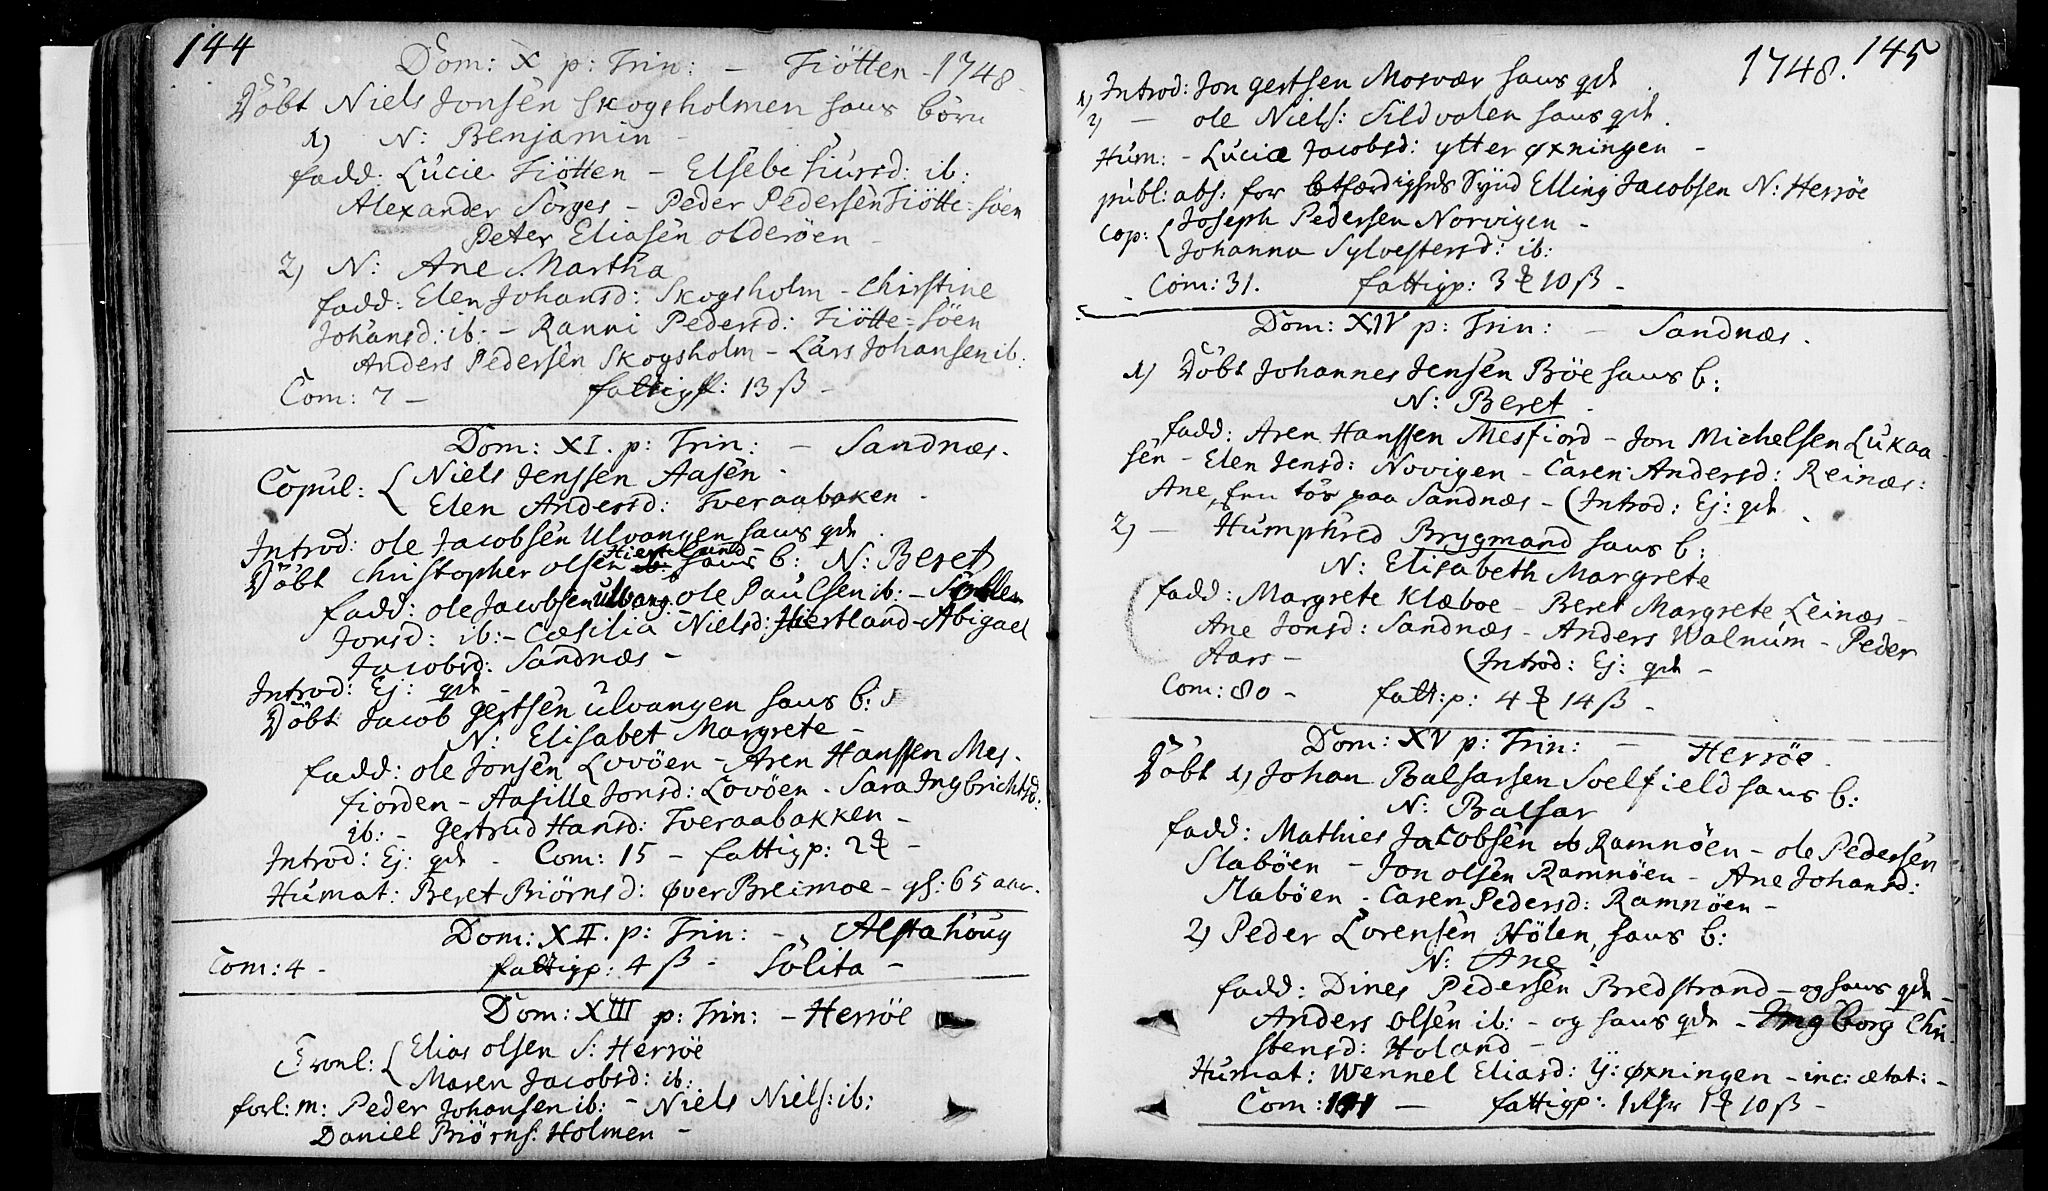 144
Dom: X p: Trin: — Tiötten 1748
Döbt Niels Jonsen Skogsholmen hans börn
1) N: Benjamin
fadd: Lucie Tiötten — Elsebe ib:
Alexander Sörges — Peder Pedersen Tiötte-söen
Peter Eliasen olderöen —
2) N: Ane Martha
fadd: Elen Johansd: Skogsholm — Christine
Johansd: ib: — Ranni Pedersd: Tiötte=söen
Anders Pedersen Skogsholm — Lars Johansen ib:
Com: 7 — fattigp: 13 ß —
Dom: XI. p: Trin: — Sandnæs.
Copul: { Niels Jenssen Aasen —
Elen Andersd: Tveraabaken —
Introd: ole Jacobsen Ulvangen hans qde
Döbt Christopher olsen Hiertland hans b: N: Beret
fadd: ole Jacobsen ulvang: ole Paulsen ib: —
Jonsd: ib: — Cæsilia Nielsd: Hiertland — Abigael
Jacobsd: Sandnæs —
Introd: Ej: qde —
Döbt Jacob Gertsen ulvangen hans b:
N: Elisabet Margrete —
fadd: ole Jonsen Lovöen — Aren Hanssen Mes-
fiorden — Aasille Jonsd: Lovöen — Sara Ingbrichtsd:
ib: — Gertrud Hansd: Tveraabakken —
Introd: Ej: qde — Com: 15 — fattigp: 2 ⚹ —
Humat: Beret Biörnsd: øver Breimoe — gl: 65 aar.
Dom: XII. p: Trin: — Alstahoug
Com: 4 — fattigp: 4 ß — Solita —
Dom: XIII p: Trin: — Herröe
Troul: { Elias olsen S: Herröe
Maren Jacobsd: ib:
forl: m: Peder Johansen ib: — Niels Niels: ib:
Daniel Biörns: Holmen —
1748. 145
1) Introd: Jon gertsen Mosvær hans qde
2) — ole Niels: Sildvalen hans qde.
Hum: — Luciæ Jacobsd: ytter øxningen —
publ: abs: for letfærdigheds Synd Elling Jacobsen N: Herröe
Cop: { Joseph Pedersen Norvigen —
Johanna Sylvestersd: ib:
Com: 31. fattigp: 3 ⚹ 10 ß —
Dom: XIV p: Trin: — Sandnæs.
1) Döbt Johannes Jensen Böe hans b:
N: Beret
fadd: Aren Hanssen Mesfiord — Jon Michelsen Lukaa-
sen — Elen Jensd: Novigen — Caren Andersd: Reinæs:
Ane, paa Sandnæs — (Introd: Ej: qde
2) — Humphred Brygmand hans b:
N: Elisabeth Margrete
fadd: Margrete Klæboe — Beret Margrete Leinæs —
Ane Jonsd: Sandnæs — Anders Walnum — Peder
Aars — (Introd: Ej: qde —
Com: 80 — fatt: p: 4 ⚹ 14 ß —
Dom: XV p: Trin: — Herröe —
Döbt 1) Johan Balsarsen Soelfield hans b:
N: Balsar
fadd: Mathies Jacobsen Ramnöen — ole Pedersen
Slaböen — Jon olsen Ramnöen — Ane Johansd:
Slaböen — Caren Pedersd: Ramnöen —
2) Peder Lorensen Hölen, hans b:
N: Ane —
fadd: Dines Pedersen Bredstrand — og hans qde —
Anders olsen ib: — og hans qde — Ingborg Chri-
stensd: Holand —
Humat: Wennel Eliasd: Y: øxningen — inc: ætat: —
Com: 141 — fattigp: 1 Rdr 1 ⚹ 10 ß —